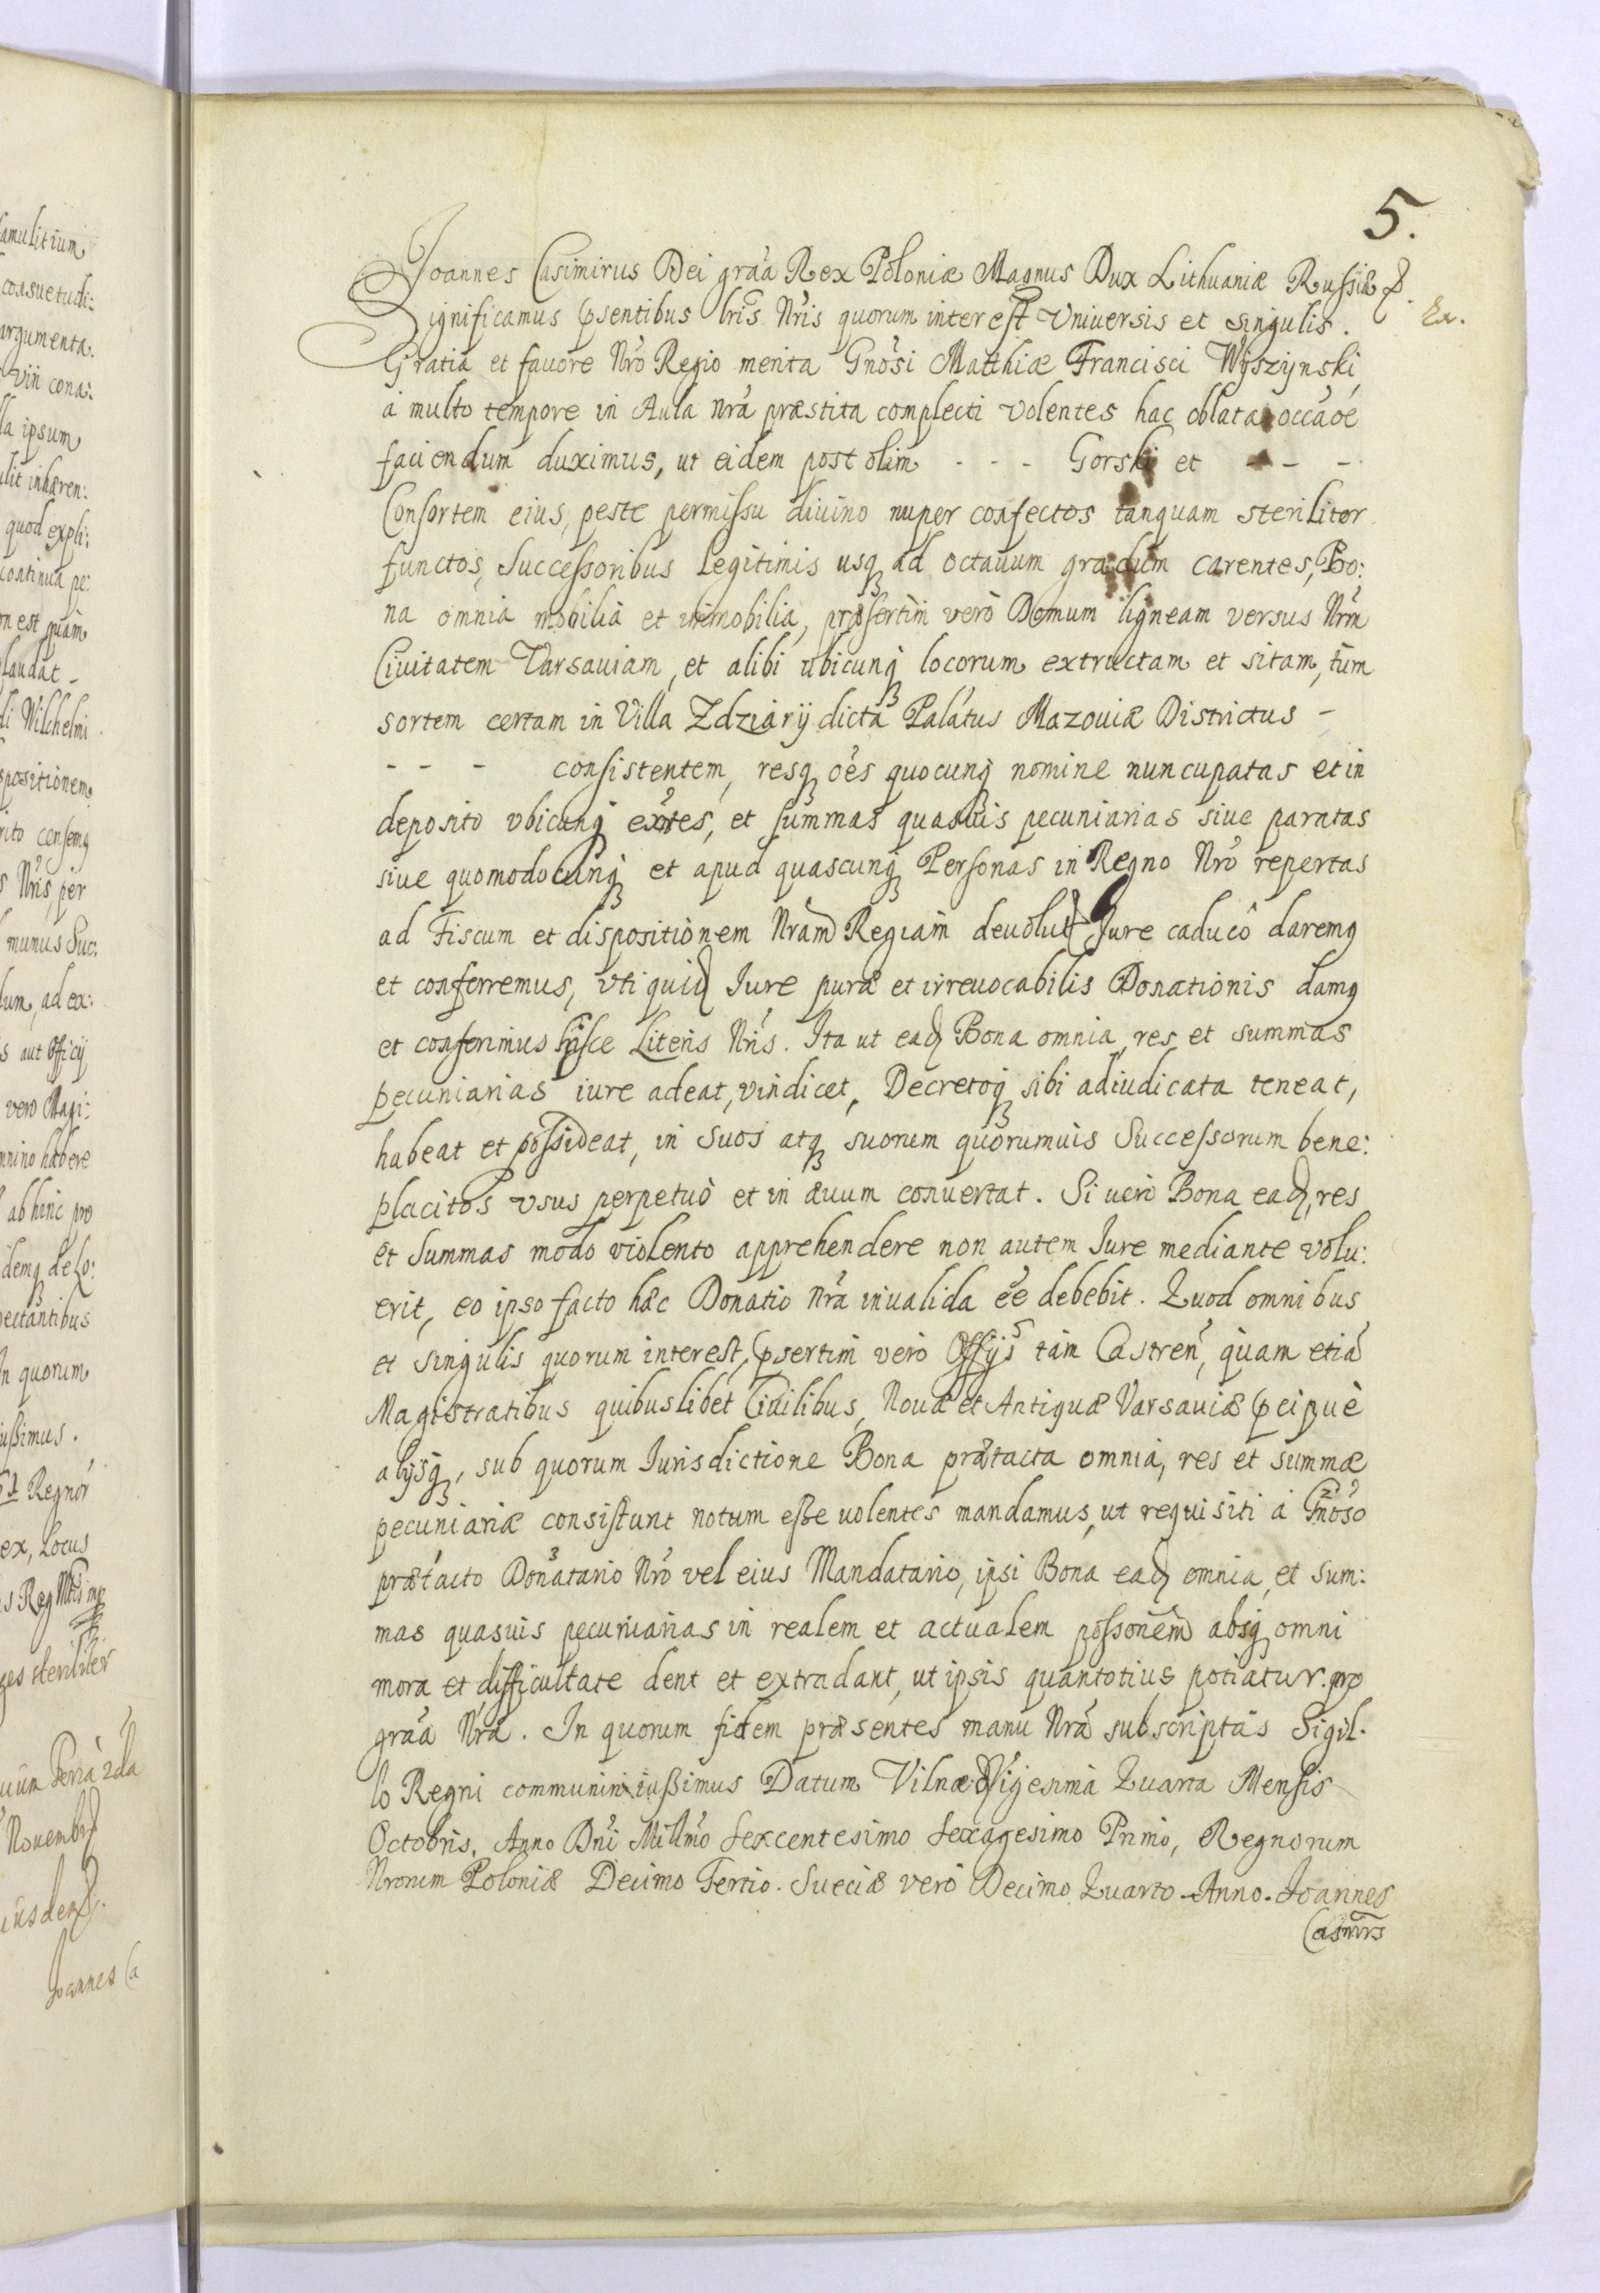 amulitium
consuetudi:
argumenta.
vii cona:
la ipsum
ulit inhæren:
quod expli:
continua pe:
n est quam
laudat -
di Wilchelmi
spositionem
rito censemq
s Nris, per
munus Suc:
dum, ad ex:
s aut officij
vero Magi:
mnino habere
ab hinc pro
idemq de Lo:
pectantibus
In quorum
ußimus.
Regnor
ex, Locus
s Reg
ges steriliter
Feria 2da
Novembr
iusdem
Joannes Ca
5.
Joannes Casimirus Dei graa Rex Poloniæ Magnus Dux Lithuaniæ Russiæ &.
Ex.
Significamus psentibus lris Nris quorum interest Vniuersis et singulis.
Gratia et fauore Nro Regio merita Gnosi Matthiæ Francisci Wyszynski,
a multo tempore in Aula nra præstita complecti volentes hac oblata occaoe
faciendum duximus, ut eidem post olim - - - Gorski et - - -
Consortem eius, peste permissu diuino nuper confectos tanquam steriliter
functos, Successoribus Legitimis usq ad octauum gradum carentes, Bo:
na omnia mobilia et immobilia, præsertim verò Domum ligneam versus Nrm
Ciuitatem Varsauiam, et alibi ubicunq locorum extructam et sitam, tum
sortem certam in Villa Zdziary dicta Palatus Mazouiæ Districtus -
- - - consistentem, resq oes quocunq nomine nuncupatas et in
deposito vbicunq extes, et summas quasuis pecuniarias siue paratas
siue quomodocunq et apud quascunq Personas in Regno Nro repertas
ad Fiscum et dispositionem Nram Regiam deuolut Jure caducô daremq
et conferremus, vti quid Jure puræ et irreuocabilis Donationis damq
et conferimus hisce Literis Nris. Ita ut ead Bona omnia, res et summas
pecuniarias iure adeat, vindicet, Decretoq sibi adiudicata teneat,
habeat et possideat, in suos atq suorum quorumuis Successorum bene:
placitos vsus perpetuò et in æuum conuertat. Si uero Bona ead, res
et Summas modo violento apprehendere non autem Jure mediante volu:
erit, eo ipso facto hæc Donatio nra inualida ee debebit. Quod omnibus
et singulis quorum interest, psertim verò Offijs tam Castren, quam etia
Magistratibus quibuslibet Ciuilibus, Nouæ et Antiquæ Varsauiæ pcipuè
alijsq, sub quorum Jurisdictione Bona prætacta omnia, res et summæ
pecuniariæ consistunt notum esse uolentes mandamus, ut requisiti a Gnoso
prætacto Donatario Nro vel eius Mandatario, ipsi Bona ead omnia, et sum:
mas quasuis pecuniarias in realem et actualem possonem absq omni
mora et difficultate dent et extradant, ut ipsis quantotius potiatur. pro
graa Nra. In quorum fidem præsentes manu Nra subscriptas Sigil-
lo Regni communiri iußimus Datum Vilnæ Vigesima Quarta Mensis
Octobris, Anno Dni Millmo Sexcentesimo Sexagesimo Primo, Regnorum
Nrorum Poloniæ Decimo Tertio. Sueciæ verò Decimo Quarto Anno. Joannes
Casimrs